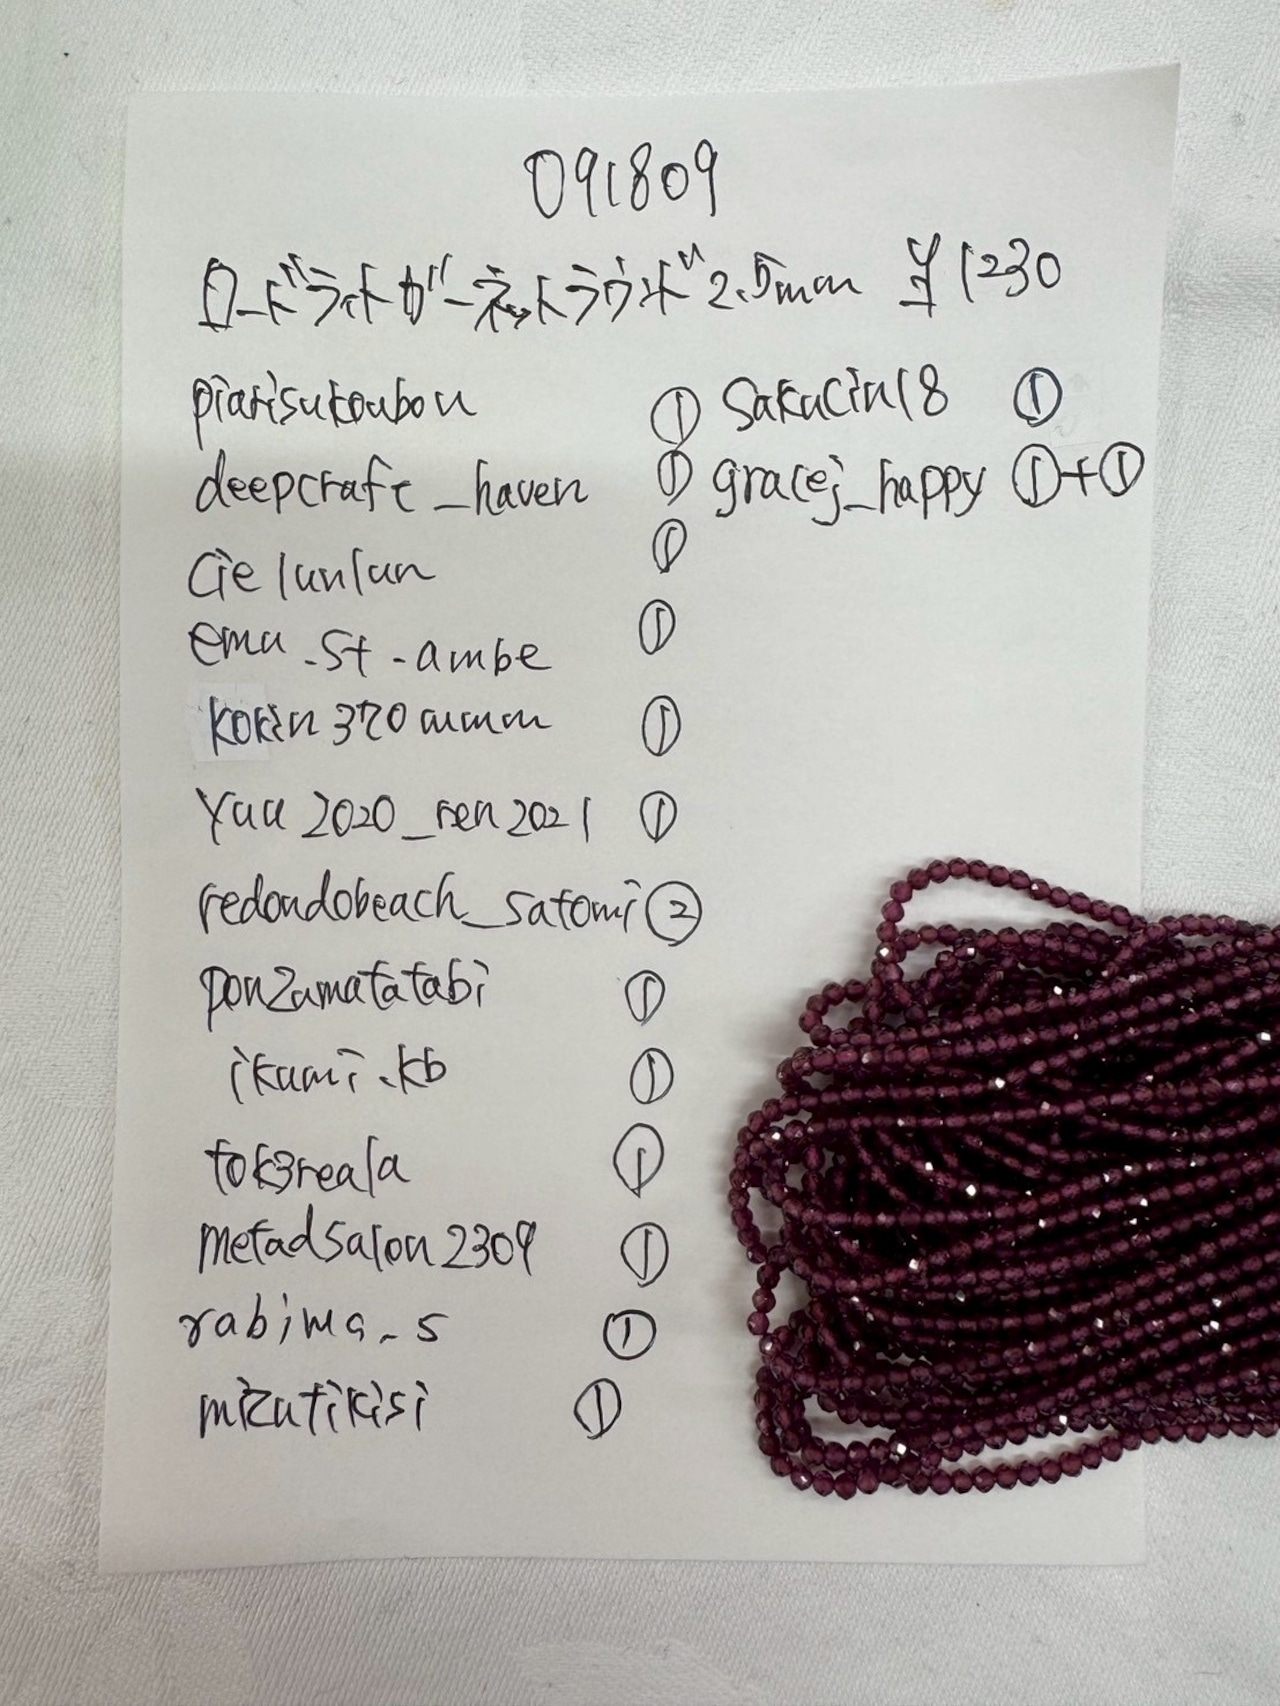 091809
ロードライトガーネットラウンド2.5mm ¥1230
piarisukoubou ①
deepcraft_haven ①
cielunlun ①
emu_st_ambe ①
kokin370mumm ①
yuu2020_ren2021 ①
redondobeach_satomi ②
ponzumatatabi ①
ikumi.kb ①
tok3reala ①
metadsalon2309 ①
rabima_s ①
mizutikisi ①
sakucin18 ①
gracej_happy ①+①